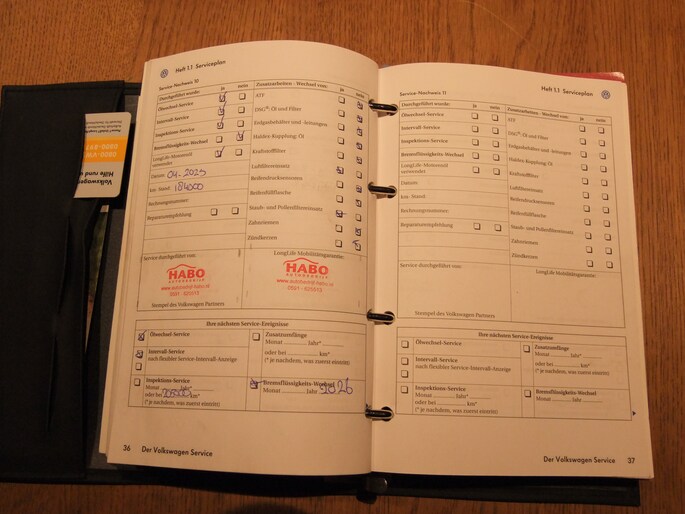 Heft 1.1 Serviceplan
Service-Nachweis 10
Durchgeführt wurde: ja nein
Ölwechsel-Service
Intervall-Service
Inspektions-Service
Bremsflüssigkeits-Wechsel
LongLife-Motorenöl
verwendet
Datum 04.2025
km-Stand 184000
Rechnungsnummer:
Reparaturempfehlung
Zusatzarbeiten - Wechsel von: ja nein
ATF
DSG®-Öl und Filter
Erdgasbehälter und -leitungen
Haldex-Kupplung: Öl
Kraftstofffilter
Luftfiltereinsatz
Reifendruckensoren
Reifenfüllflasche
Staub- und Pollenfiltereinsatz
Zahnriemen
Zündkerzen
Service durchgeführt von:
HABO
Stempel des Volkswagen Partners
LongLife Mobilitätsgarantie:
HABO
Ihre nächsten Service-Ereignisse
Ölwechsel-Service
Intervall-Service
nach flexibler Service-Intervall-Anzeige
Inspektions-Service
Monat Jahr*
oder bei km*
(* je nachdem, was zuerst eintritt)
Zusatzumfänge
Monat Jahr*
oder bei km*
(* je nachdem, was zuerst eintritt)
Bremsflüssigkeits-Wechsel
Monat Jahr 2026
36 Der Volkswagen Service
Heft 1.1 Serviceplan
Service-Nachweis 11
Durchgeführt wurde: ja nein
Ölwechsel-Service
Intervall-Service
Inspektions-Service
Bremsflüssigkeits-Wechsel
LongLife-Motorenöl
verwendet
Datum
km-Stand
Rechnungsnummer:
Reparaturempfehlung
Zusatzarbeiten - Wechsel von: ja nein
ATF
DSG®-Öl und Filter
Erdgasbehälter und -leitungen
Haldex-Kupplung: Öl
Kraftstofffilter
Luftfiltereinsatz
Reifendruckensoren
Reifenfüllflasche
Staub- und Pollenfiltereinsatz
Zahnriemen
Zündkerzen
Service durchgeführt von:
LongLife Mobilitätsgarantie:
Stempel des Volkswagen Partners
Ihre nächsten Service-Ereignisse
Ölwechsel-Service
Intervall-Service
nach flexibler Service-Intervall-Anzeige
Inspektions-Service
Monat Jahr*
oder bei km*
(* je nachdem, was zuerst eintritt)
Zusatzumfänge
Monat Jahr*
oder bei km*
(* je nachdem, was zuerst eintritt)
Bremsflüssigkeits-Wechsel
Monat Jahr
Der Volkswagen Service 37